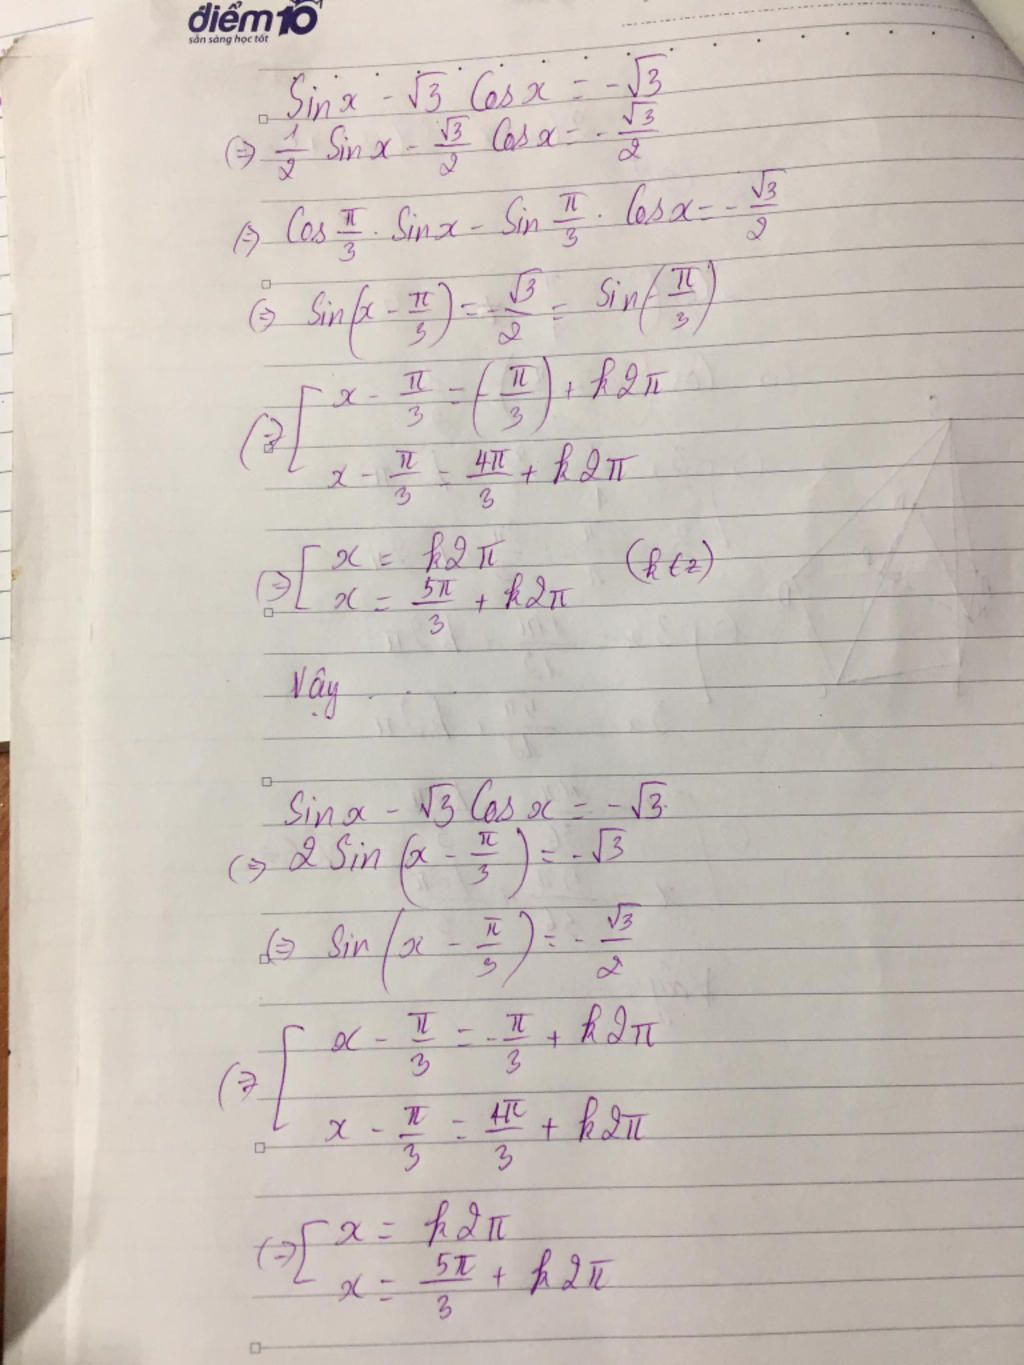 điểm10
sẵn sàng học tốt
Sin x - √3 Cos x = -√3
(=) 1/2 Sin x - √3/2 Cos x = - √3/2
(=) Cos π/3 . Sin x - Sin π/3 . Cos x = - √3/2
(=) Sin(x - π/3) = - √3/2 = Sin(-π/3)
(=) [ x - π/3 = (-π/3) + k2π
x - π/3 = 4π/3 + k2π
(=) [ x = k2π (k∈z)
x = 5π/3 + k2π
Vậy . . .
Sin x - √3 Cos x = -√3
(=) 2 Sin (x - π/3) = -√3
(=) Sin (x - π/3) = - √3/2
(=) [ x - π/3 = - π/3 + k2π
x - π/3 = 4π/3 + k2π
(=) [ x = k2π
x = 5π/3 + k2π